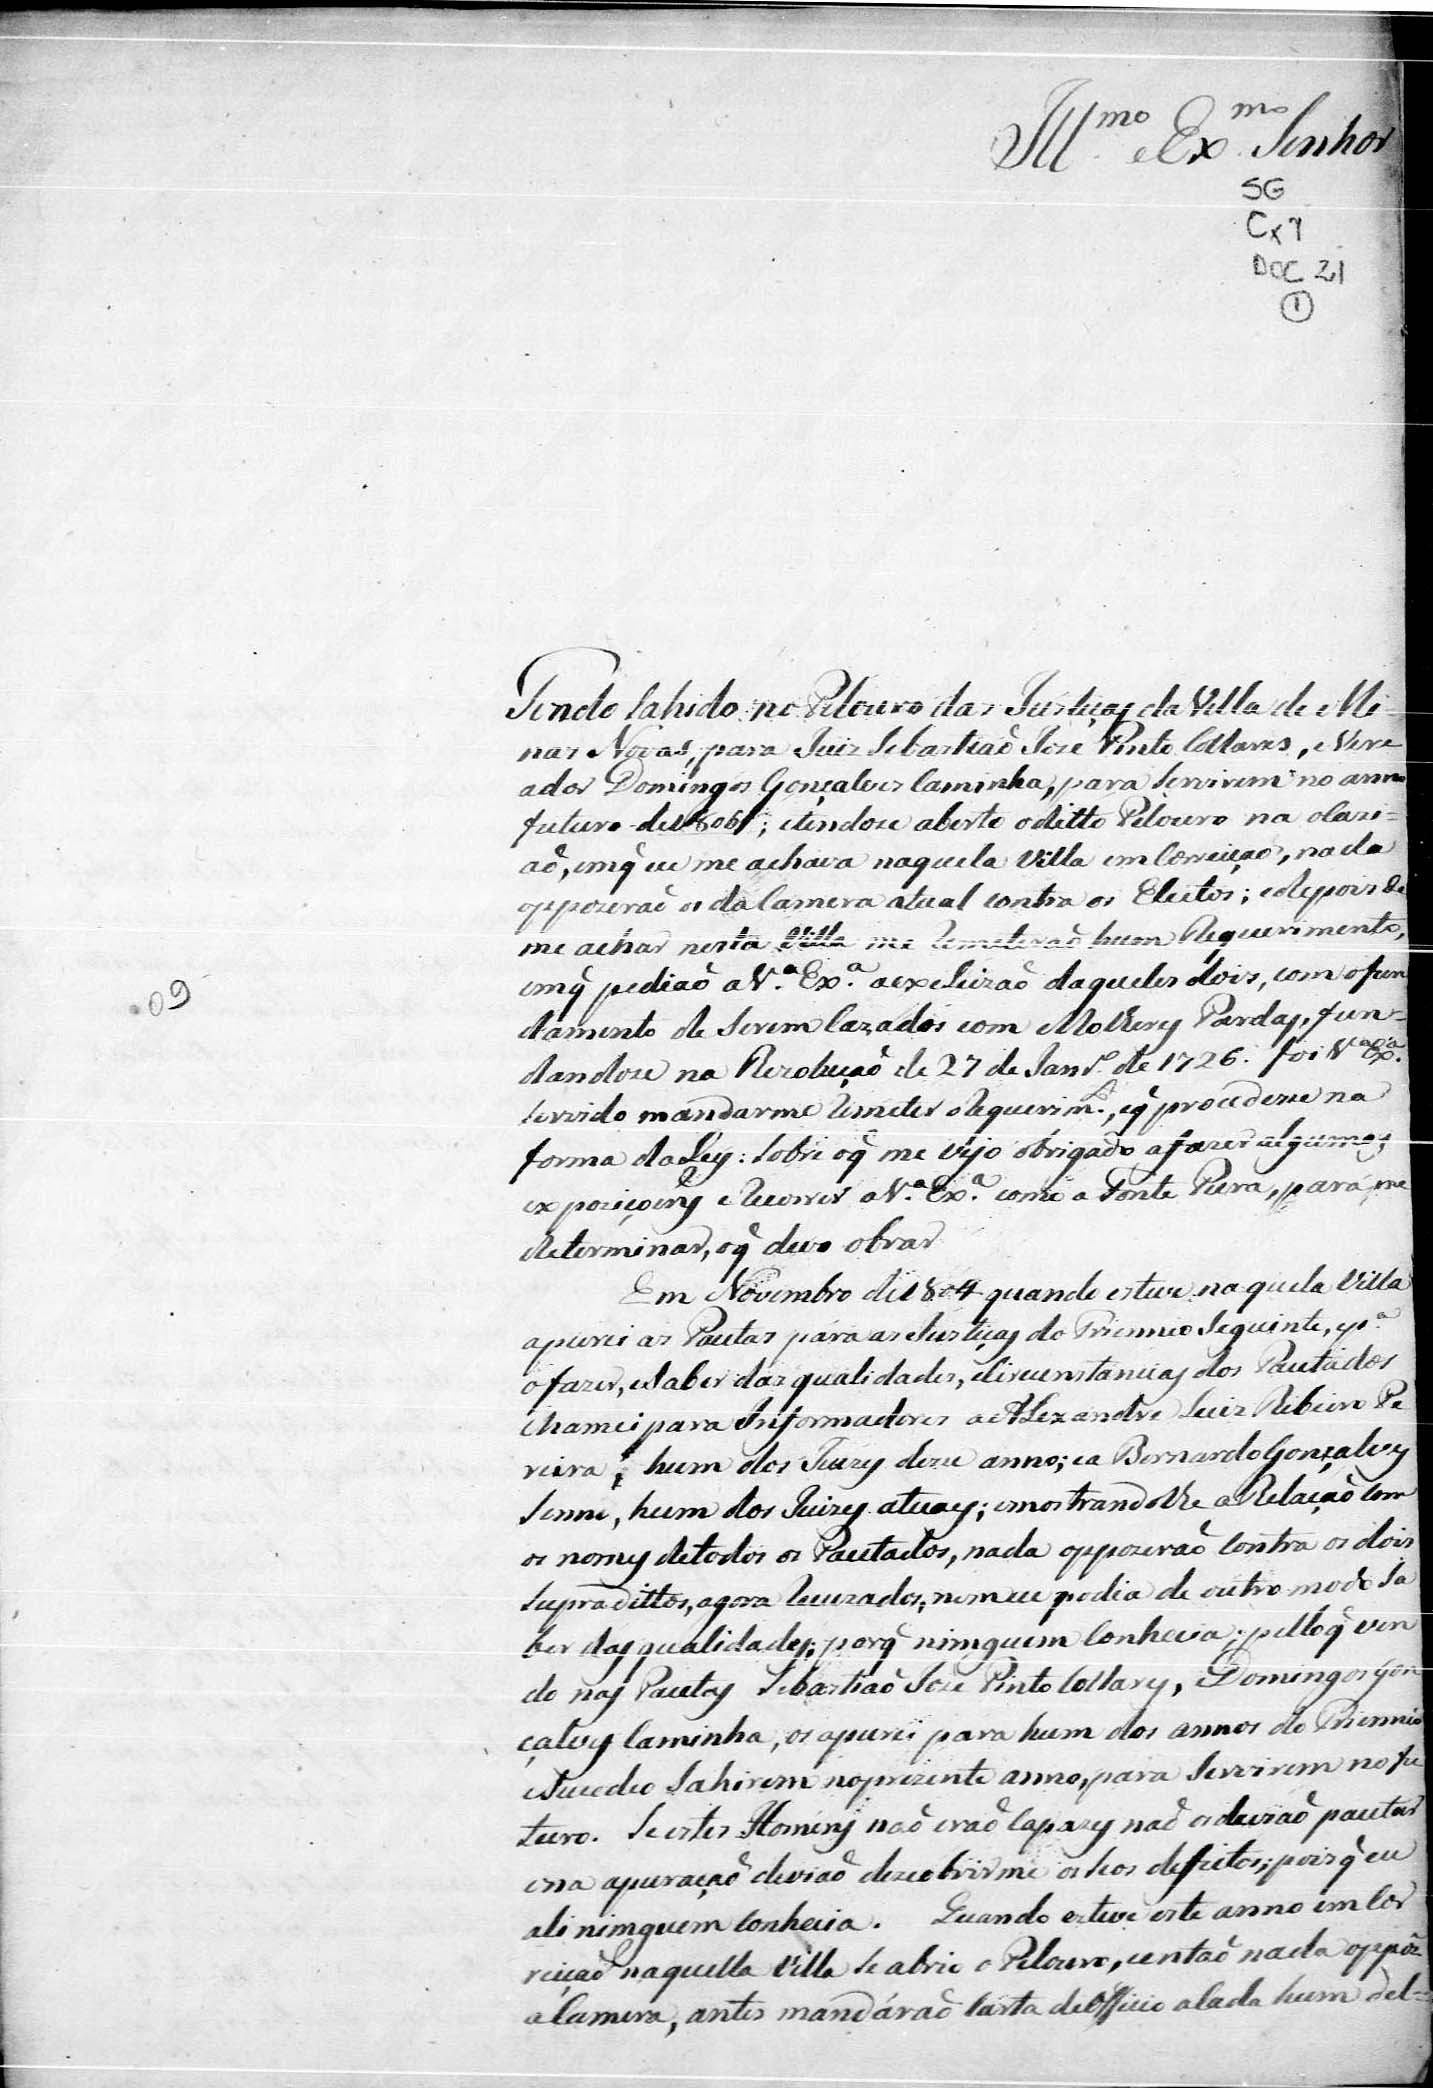 Ill.mo e Ex.mo Senhor
SG
Cx 7
DOC 21
1
Tendo sahido no Pelouro das Justiças da Villa de Mi-
nas Novas, para Juiz Sebastiaõ Joze Pinto Collares, e Vere
ador Domingos Gonçalves Caminha, para servirem no anno
futuro de 1806; e tendose aberto o ditto Pelouro na ocazi=
aõ, em q̃ eu me achava naquela Villa em Correiçaõ, nada
oppozeraõ os da Camera atual contra os Eleitos; e depois de
me achar nesta Villa me remeteraõ hum Requerimento,
em q̃ pediaõ a V.ª Ex.ª a excluizaõ daqueles dois, com o fun
damento de serem cazados com Molheres Pardas, fun=
dandose na Rezoluçaõ de 27 de Janr.º de 1726. foi V.ª Ex.ª
servido mandarme remeter o requerim.to, e q̃ procedesse na
forma da Ley: sobre o q̃ me vejo obrigado a fazer algumas
expoziçoens e recorrer a V.ª Ex.ª como a Fonte Pura, para me
determinar, o q̃ devo obrar
Em Novembro de 1804 quando estive naquela Villa
apurei as Pautas para as Justiças do Triennio seguinte, e p.ª
o fazer, e saber das qualidades, e circunstancias dos Pautados
chamei para Informadores a Alexandre Luiz Ribeiro Pe
reira, hum dos Juizes desse anno; e a Bernardo Gonçalves
Senne, hum dos Juizes atuaes; e mostrandolhe a Relaçaõ com
os nomes de todos os Pautados, nada oppozeraõ contra os dois
supradittos, agora recuzados, nem eu podia de outro modo sa
ber das qualidades; porq̃ nimguem conhecia; pello q̃ ven
do nas Pautas Sebastiaõ Joze Pinto Collares, e Domingos Gon
çalves Caminha, os apurei para hum dos annos do Triennio
e sucedeo sahirem no prezente anno, para servirem no fu
turo. Se estes Homens naõ eraõ capazes naõ os deviaõ pautar
e na apuraçaõ deviaõ dezcobrirme os seos defeitos; pois q̃ eu
ali nimguem conhecia. Quando estive este anno em Cor
reiçaõ naquella Villa se abrio o Pelouro, e entaõ nada oppôz
a Camera, antes mandáraõ Carta de Officio a cada hum del=
09